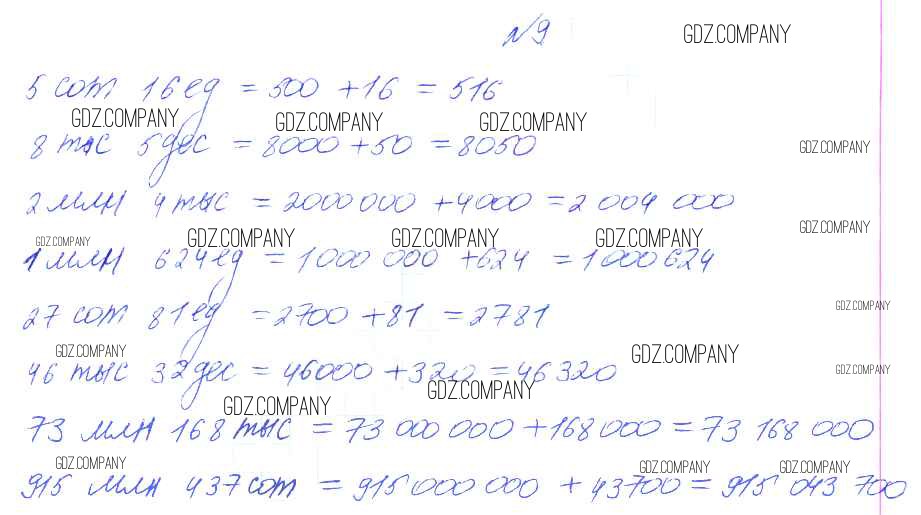 №9 GDZ.COMPANY
5 сот 16 ед = 500 + 16 = 516
GDZ.COMPANY GDZ.COMPANY GDZ.COMPANY
8 тыс 5 дес = 8000 + 50 = 8050 GDZ.COMPANY
2 млн 4 тыс = 2000 000 + 4000 = 2 004 000
GDZ.COMPANY GDZ.COMPANY GDZ.COMPANY GDZ.COMPANY GDZ.COMPANY
1 млн 624 ед = 1000 000 + 624 = 1000 624
27 сот 81 ед = 2700 + 81 = 2781 GDZ.COMPANY
GDZ.COMPANY GDZ.COMPANY
46 тыс 32 дес = 46000 + 320 = 46 320 GDZ.COMPANY
GDZ.COMPANY GDZ.COMPANY
73 млн 168 тыс = 73 000 000 + 168 000 = 73 168 000
GDZ.COMPANY GDZ.COMPANY GDZ.COMPANY
915 млн 437 сот = 915 000 000 + 43700 = 915 043 700